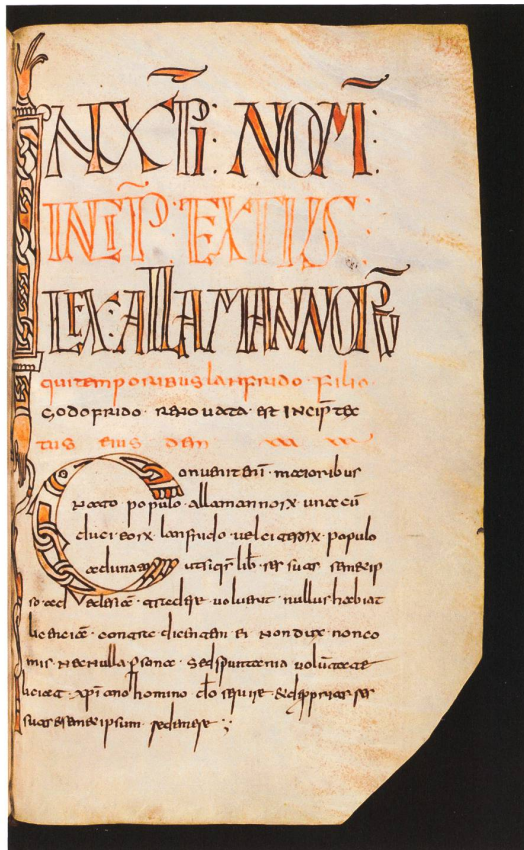 IN XP̄I: NOM̄:
INCIP̄: TEXTUS:
LEX: ALLAMANNORŪ
qui temporibus lanfrido filio
godofrido renovata est INCIP̄ tex
tus eius dem
Convenit enī maioribus
nato populo allamannorx una cū
duci eorx lanfrido vel citerorx populo
adunato ut si quis lib̄ res suas semetip
so ad ecclesiae tradere voluerit nullus habeat
licenciā contradicendi ei non dux non co
mis nec nulla persona Sed spuntania voluntate
liceat xpīano homino dō servire & de proprias res
suas semetipsum redemere